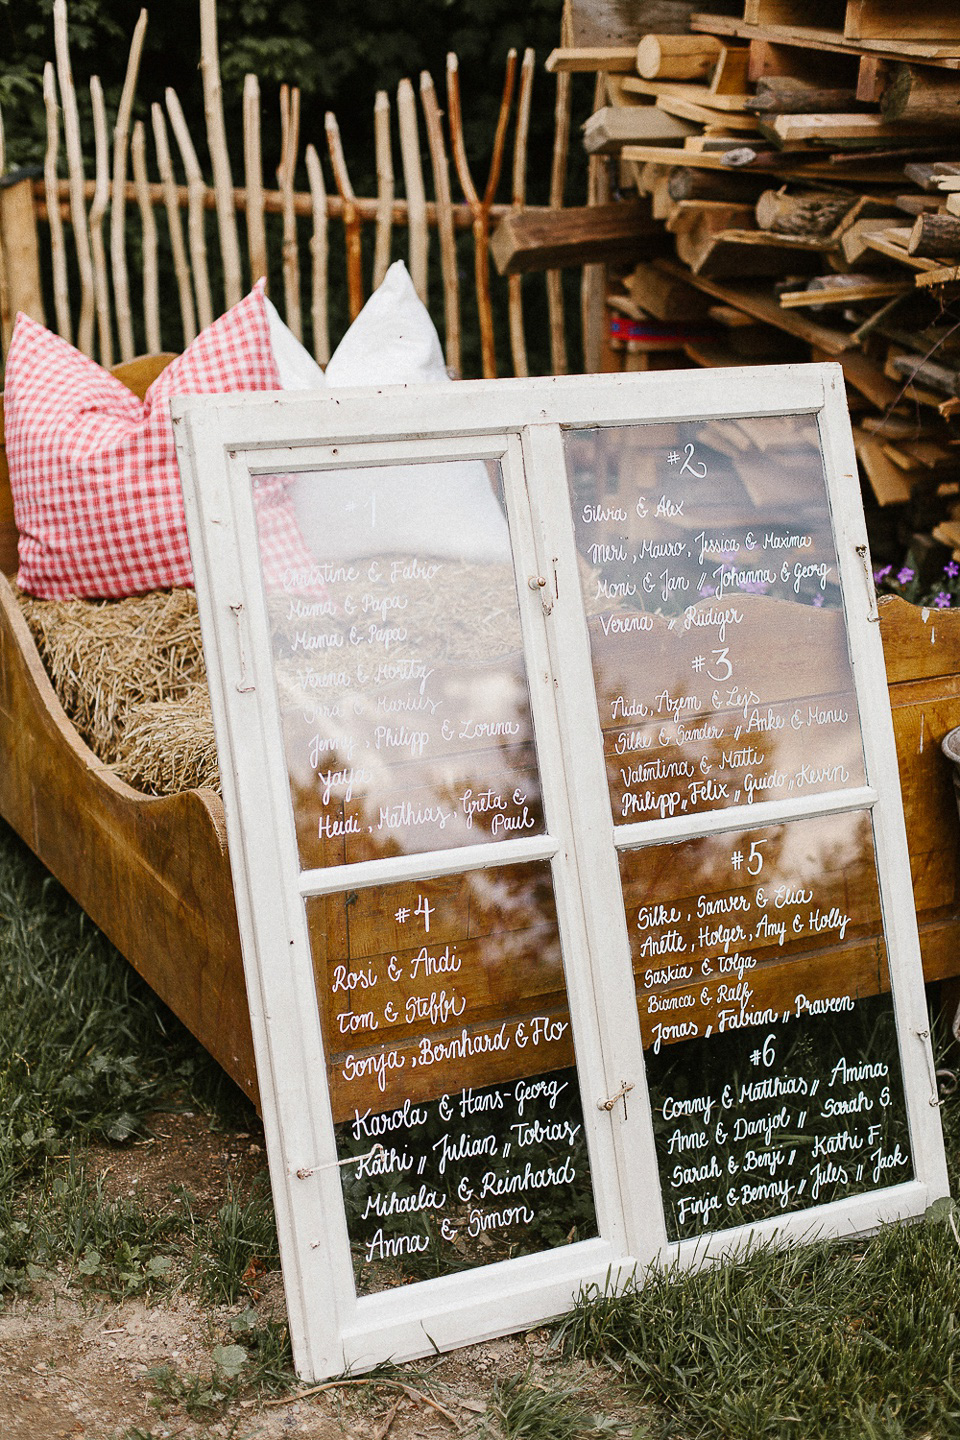 #1
Christine & Fabio
Mama & Papa
Mama & Papa
Verena & Moritz
Sara & Marius
Jenny, Philipp & Lorena
Yaya
Heidi, Mathias, Greta &
Paul
#2
Silvia & Alex
Meri, Mauro, Jessica & Maxima
Moni & Jan // Johanna & Georg
Verena // Rüdiger
#3
Aida, Azem & Lejs
Silke & Sander // Anke & Manu
Valentina & Matti
Philipp // Felix // Guido // Kevin
#4
Rosi & Andi
Tom & Steffi
Sonja, Bernhard & Flo
Karola & Hans-Georg
Kathi // Julian // Tobias
Mihaela & Reinhard
Anna & Simon
#5
Silke, Sanver & Elia
Anette, Holger, Amy & Holly
Saskia & Tolga
Bianca & Ralf
Jonas // Fabian // Praveen
#6
Conny & Matthias // Amina
Anne & Danjel // Sarah S.
Sarah & Benji // Kathi F.
Finja & Benny // Jules // Jack